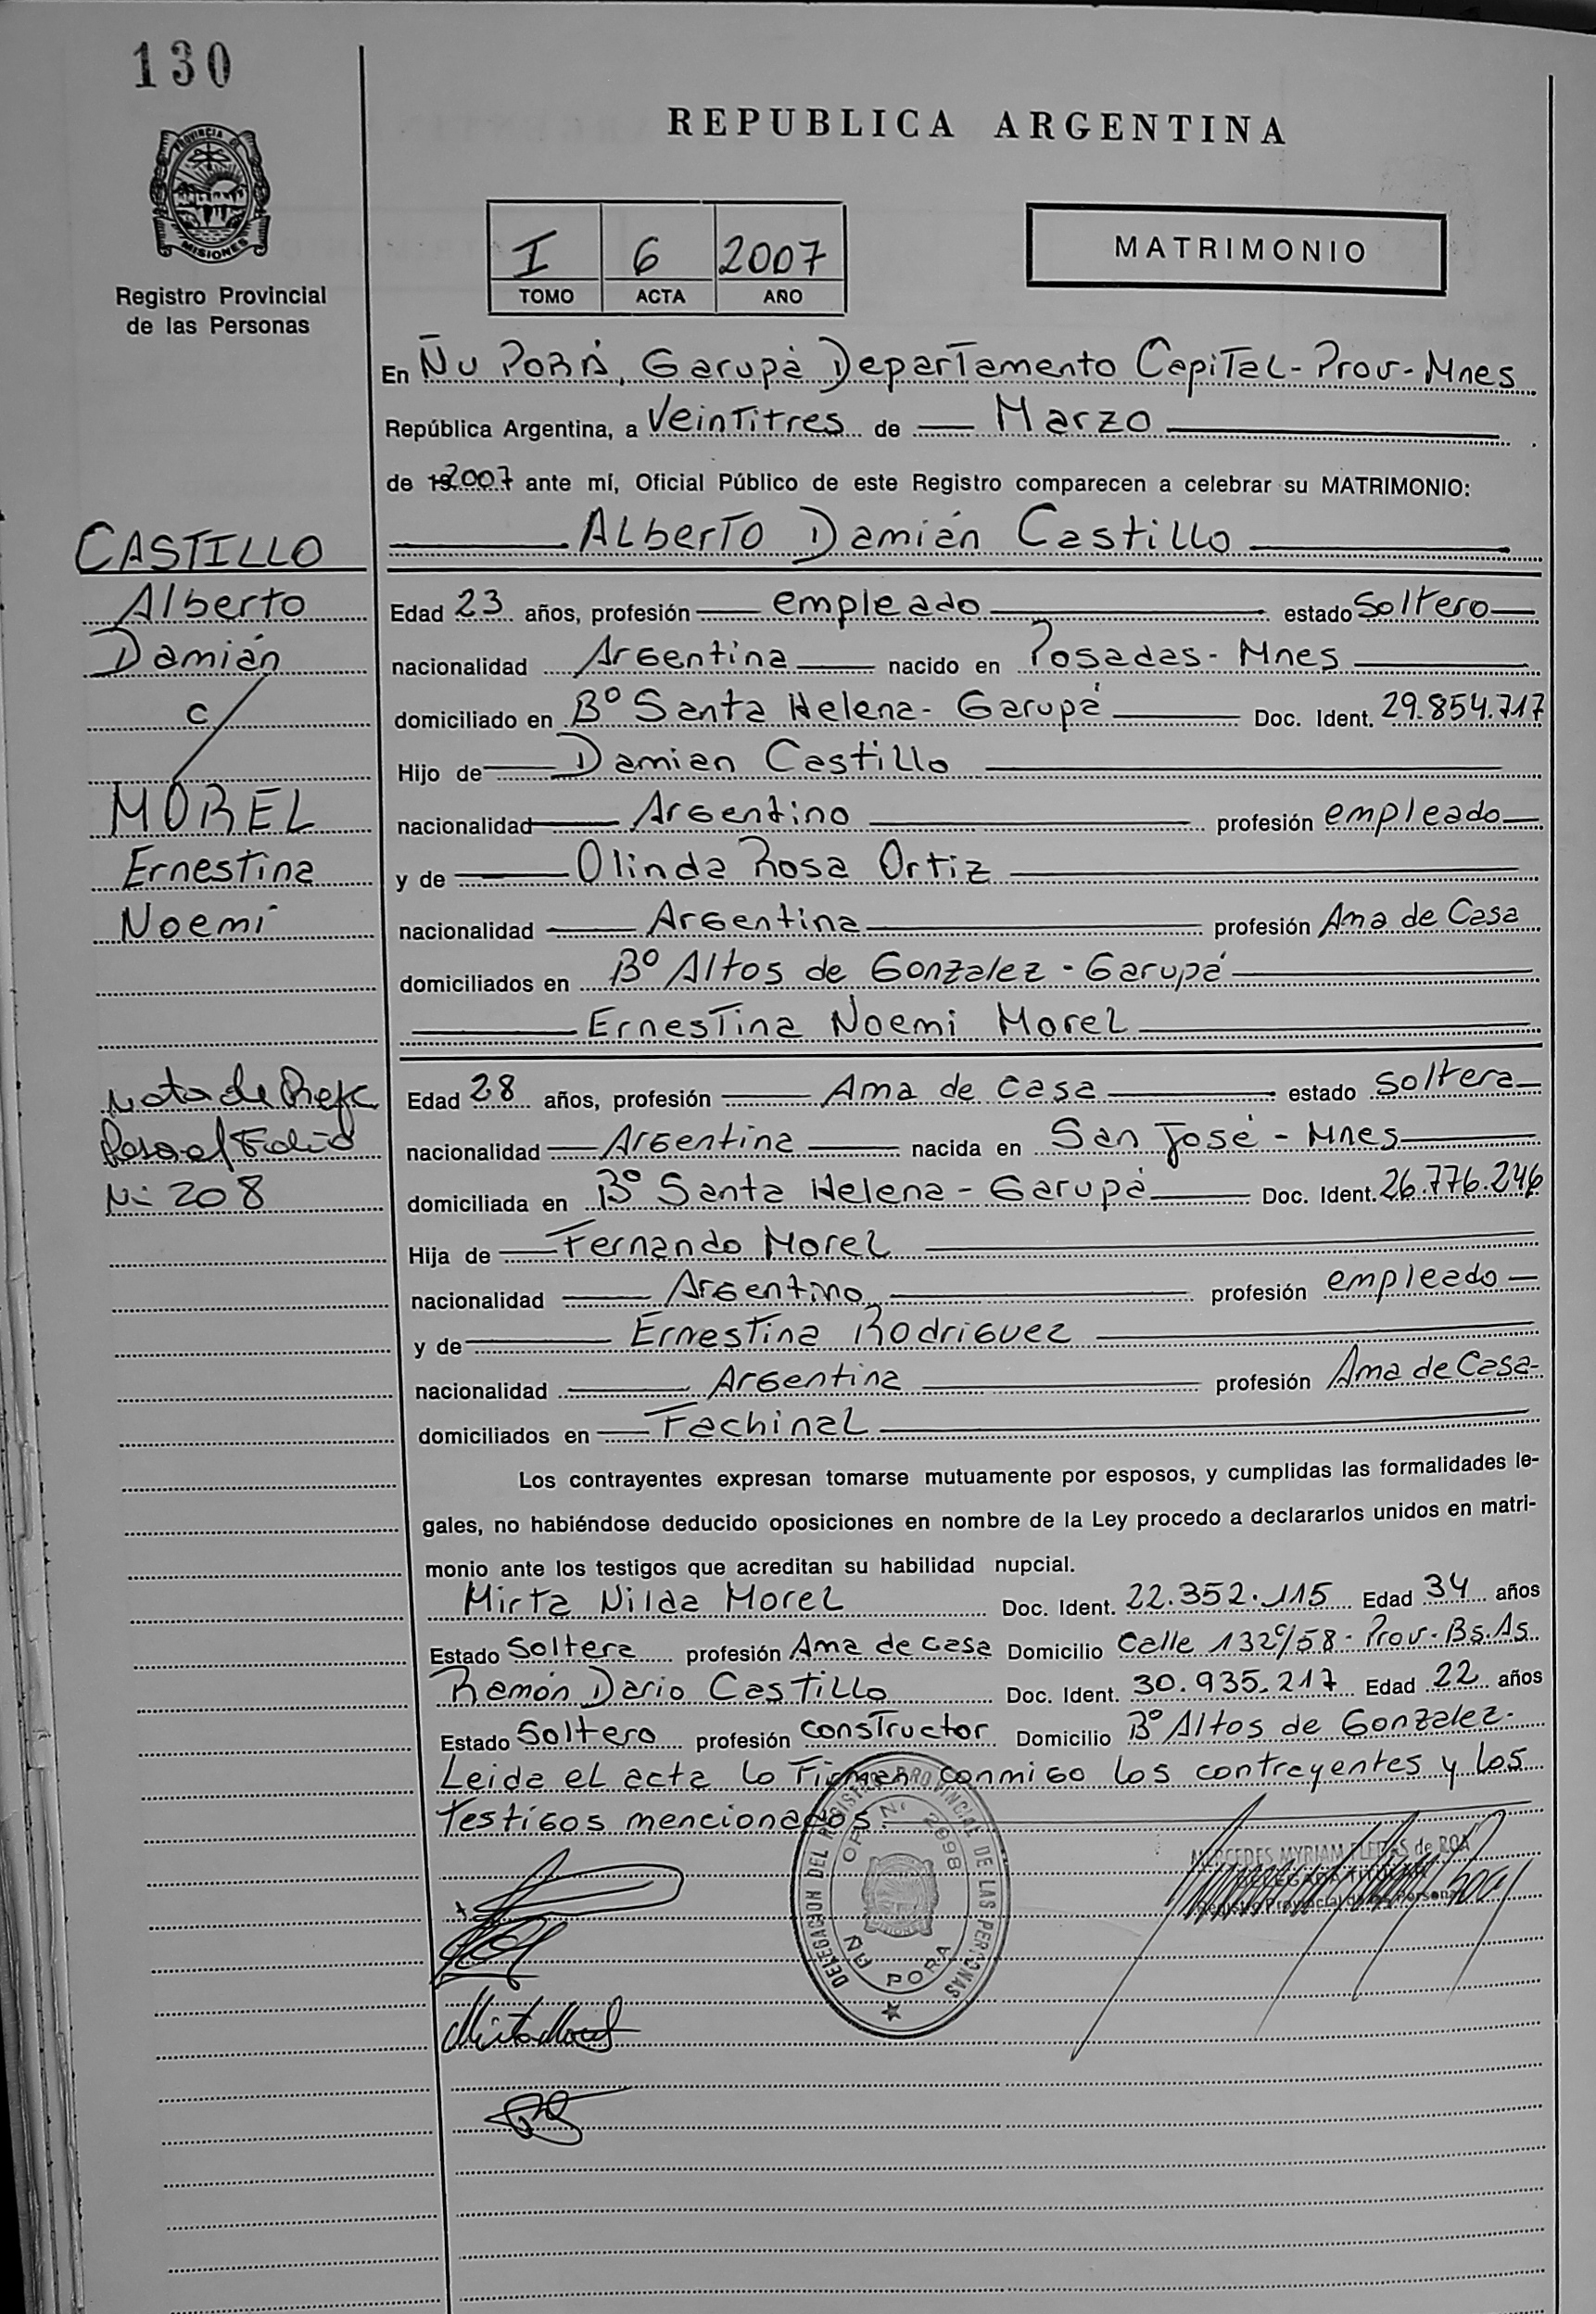 130
REPUBLICA ARGENTINA
PROVINCIA DE
MISIONES
Registro Provincial
de las Personas
I 6 2007
TOMO ACTA AÑO
MATRIMONIO
En Ñu PORÁ, Garupá Departamento Capital - Prov - Mnes
República Argentina, a Veintitres de Marzo
de 2007 ante mí, Oficial Público de este Registro comparecen a celebrar su MATRIMONIO:
Alberto Damián Castillo
CASTILLO
Alberto
Damián
c/
MOREL
Ernestina
Noemí
Edad 23 años, profesión empleado estado Soltero
nacionalidad Argentina nacido en Posadas - Mnes
domiciliado en Bº Santa Helena - Garupá Doc. Ident. 29.854.717
Hijo de Damian Castillo
nacionalidad Argentino profesión empleado
y de Olinda Rosa Ortiz
nacionalidad Argentina profesión Ama de Casa
domiciliados en Bº Altos de Gonzalez - Garupá
Ernestina Noemi Morel
Nota de
Nº 208
Edad 28 años, profesión Ama de casa estado soltera
nacionalidad Argentina nacida en San José - Mnes
domiciliada en Bº Santa Helena - Garupá Doc. Ident. 26.776.246
Hija de Fernando Morel
nacionalidad Argentino profesión empleado
y de Ernestina Rodriguez
nacionalidad Argentina profesión Ama de Casa
domiciliados en Fachinal
Los contrayentes expresan tomarse mutuamente por esposos, y cumplidas las formalidades le-
gales, no habiéndose deducido oposiciones en nombre de la Ley procedo a declararlos unidos en matri-
monio ante los testigos que acreditan su habilidad nupcial.
Mirta Nilda Morel Doc. Ident. 22.352.115 Edad 34 años
Estado Soltera profesión Ama de casa Domicilio Calle 132 c/58 - Prov - Bs. As.
Ramón Dario Castillo Doc. Ident. 30.935.217 Edad 22 años
Estado Soltero profesión constructor Domicilio Bº Altos de Gonzalez.
Leida el acta lo Firman conmigo los contrayentes y los
testigos mencionados.
DELEGACION DEL REGISTRO PROVINCIAL DE LAS PERSONAS
OF. Nº 2098
ÑU PORA
MERCEDES MYRIAM FLEITAS de ROA
DELEGADA TITULAR
Registro Provincial de las Personas
Mirta Morel